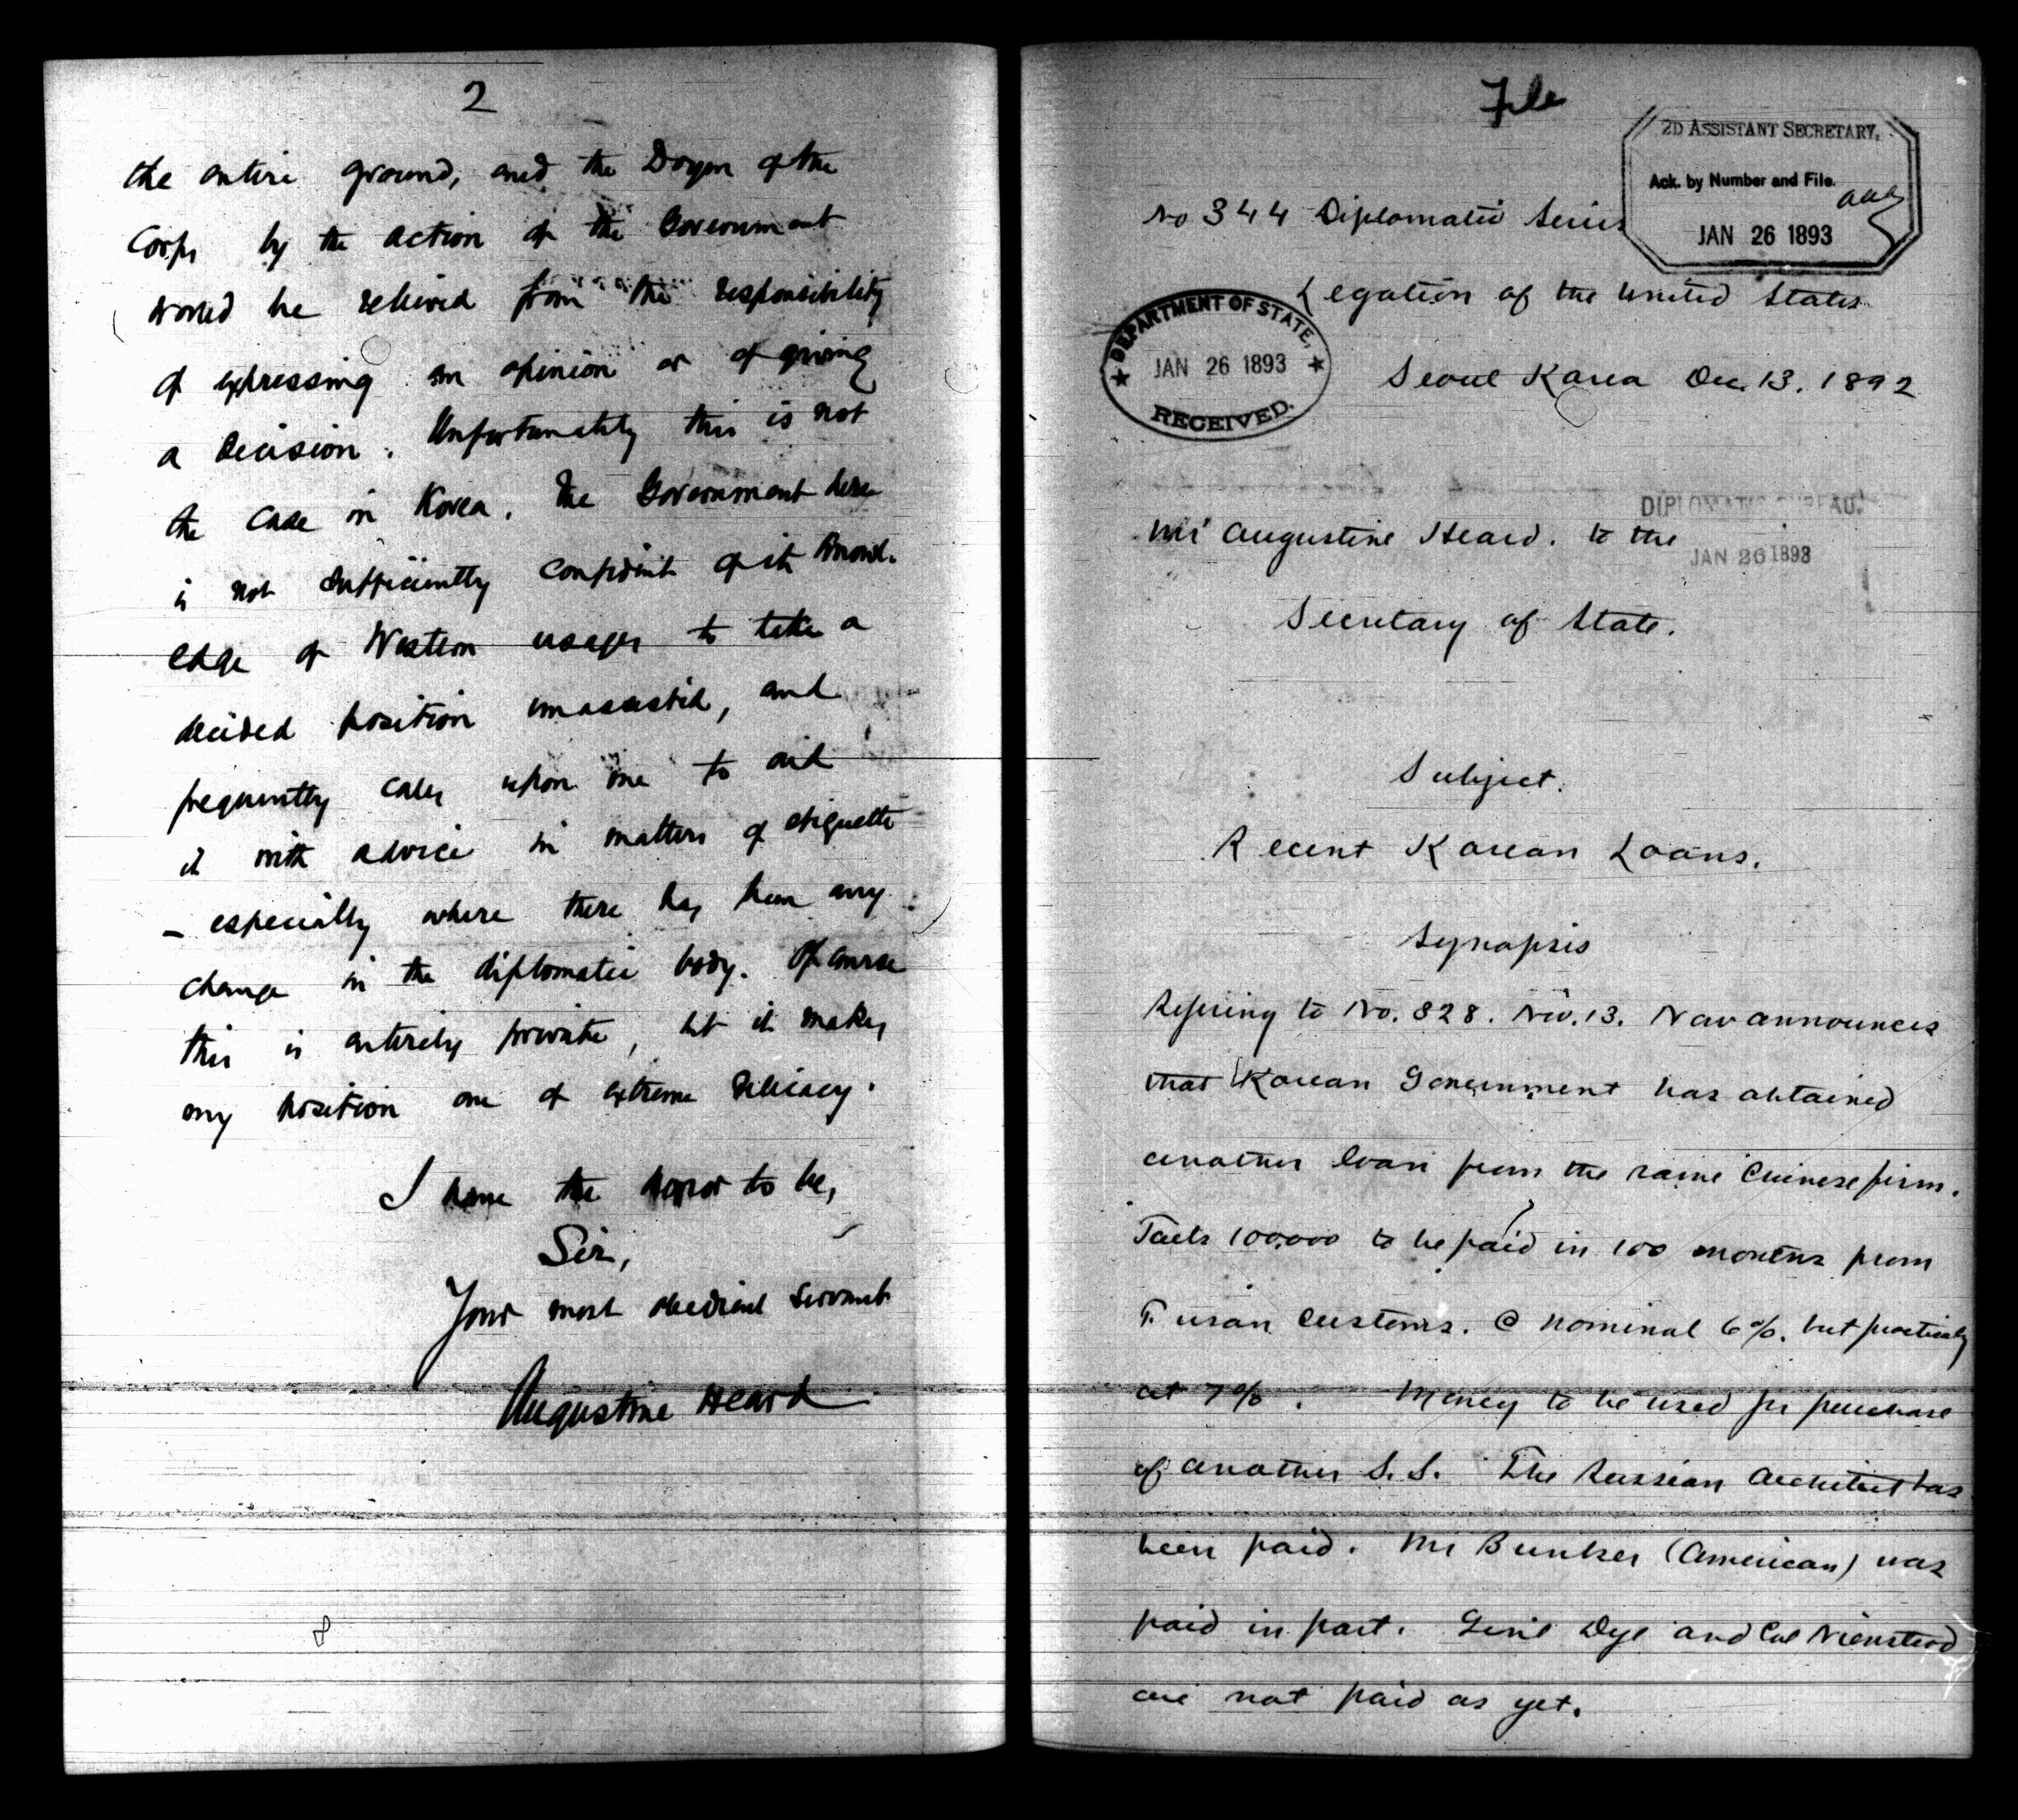 2
the entire ground, and the Doyen of the
Corps by the action of the Government
would be relieved from the responsibility
of expressing an opinion or of giving
a decision. Unfortunately this is not
the case in Korea. The Government here
is not sufficiently confident of its knowl-
edge of Western usages to take a
decided position unassisted, and
frequently calls upon me to aid
it with advice in matters of etiquette
- especially where there has been any
change in the diplomatic body. Of course
this is entirely private, but it makes
my position one of extreme delicacy.
I have the honor to be,
Sir,
Your most obedient servant
Augustine Heard
8
File
2D ASSISTANT SECRETARY,
Ack. by Number and File.
JAN 26 1893
No 344 Diplomatic Series
Legation of the United States
DEPARTMENT OF STATE,
JAN 26 1893
RECEIVED.
Seoul Korea Dec. 13. 1892
DIPLOMATIC BUREAU.
JAN 26 1893
Mr Augustine Heard. to the
Secretary of State.
Subject.
Recent Korean Loans.
Synopsis
Refering to No. 328. Nov. 13. Now announces
that Korean Government has obtained
another loan from the same Chinese firm.
Taels 100,000 to be paid in 100 months from
Fusan Customs. @ nominal 6%. but practically
at 7%. Money to be used for purchase
of another S.S. The Russian Architect has
been paid. Mr Bunker (American) was
paid in part. Genl Dye and Col Nienstead
are not paid as yet.